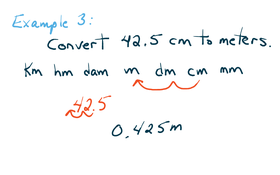 Example 3:
Convert 42.5 cm to meters.
Km hm dam m dm cm mm
42.5
0.425m